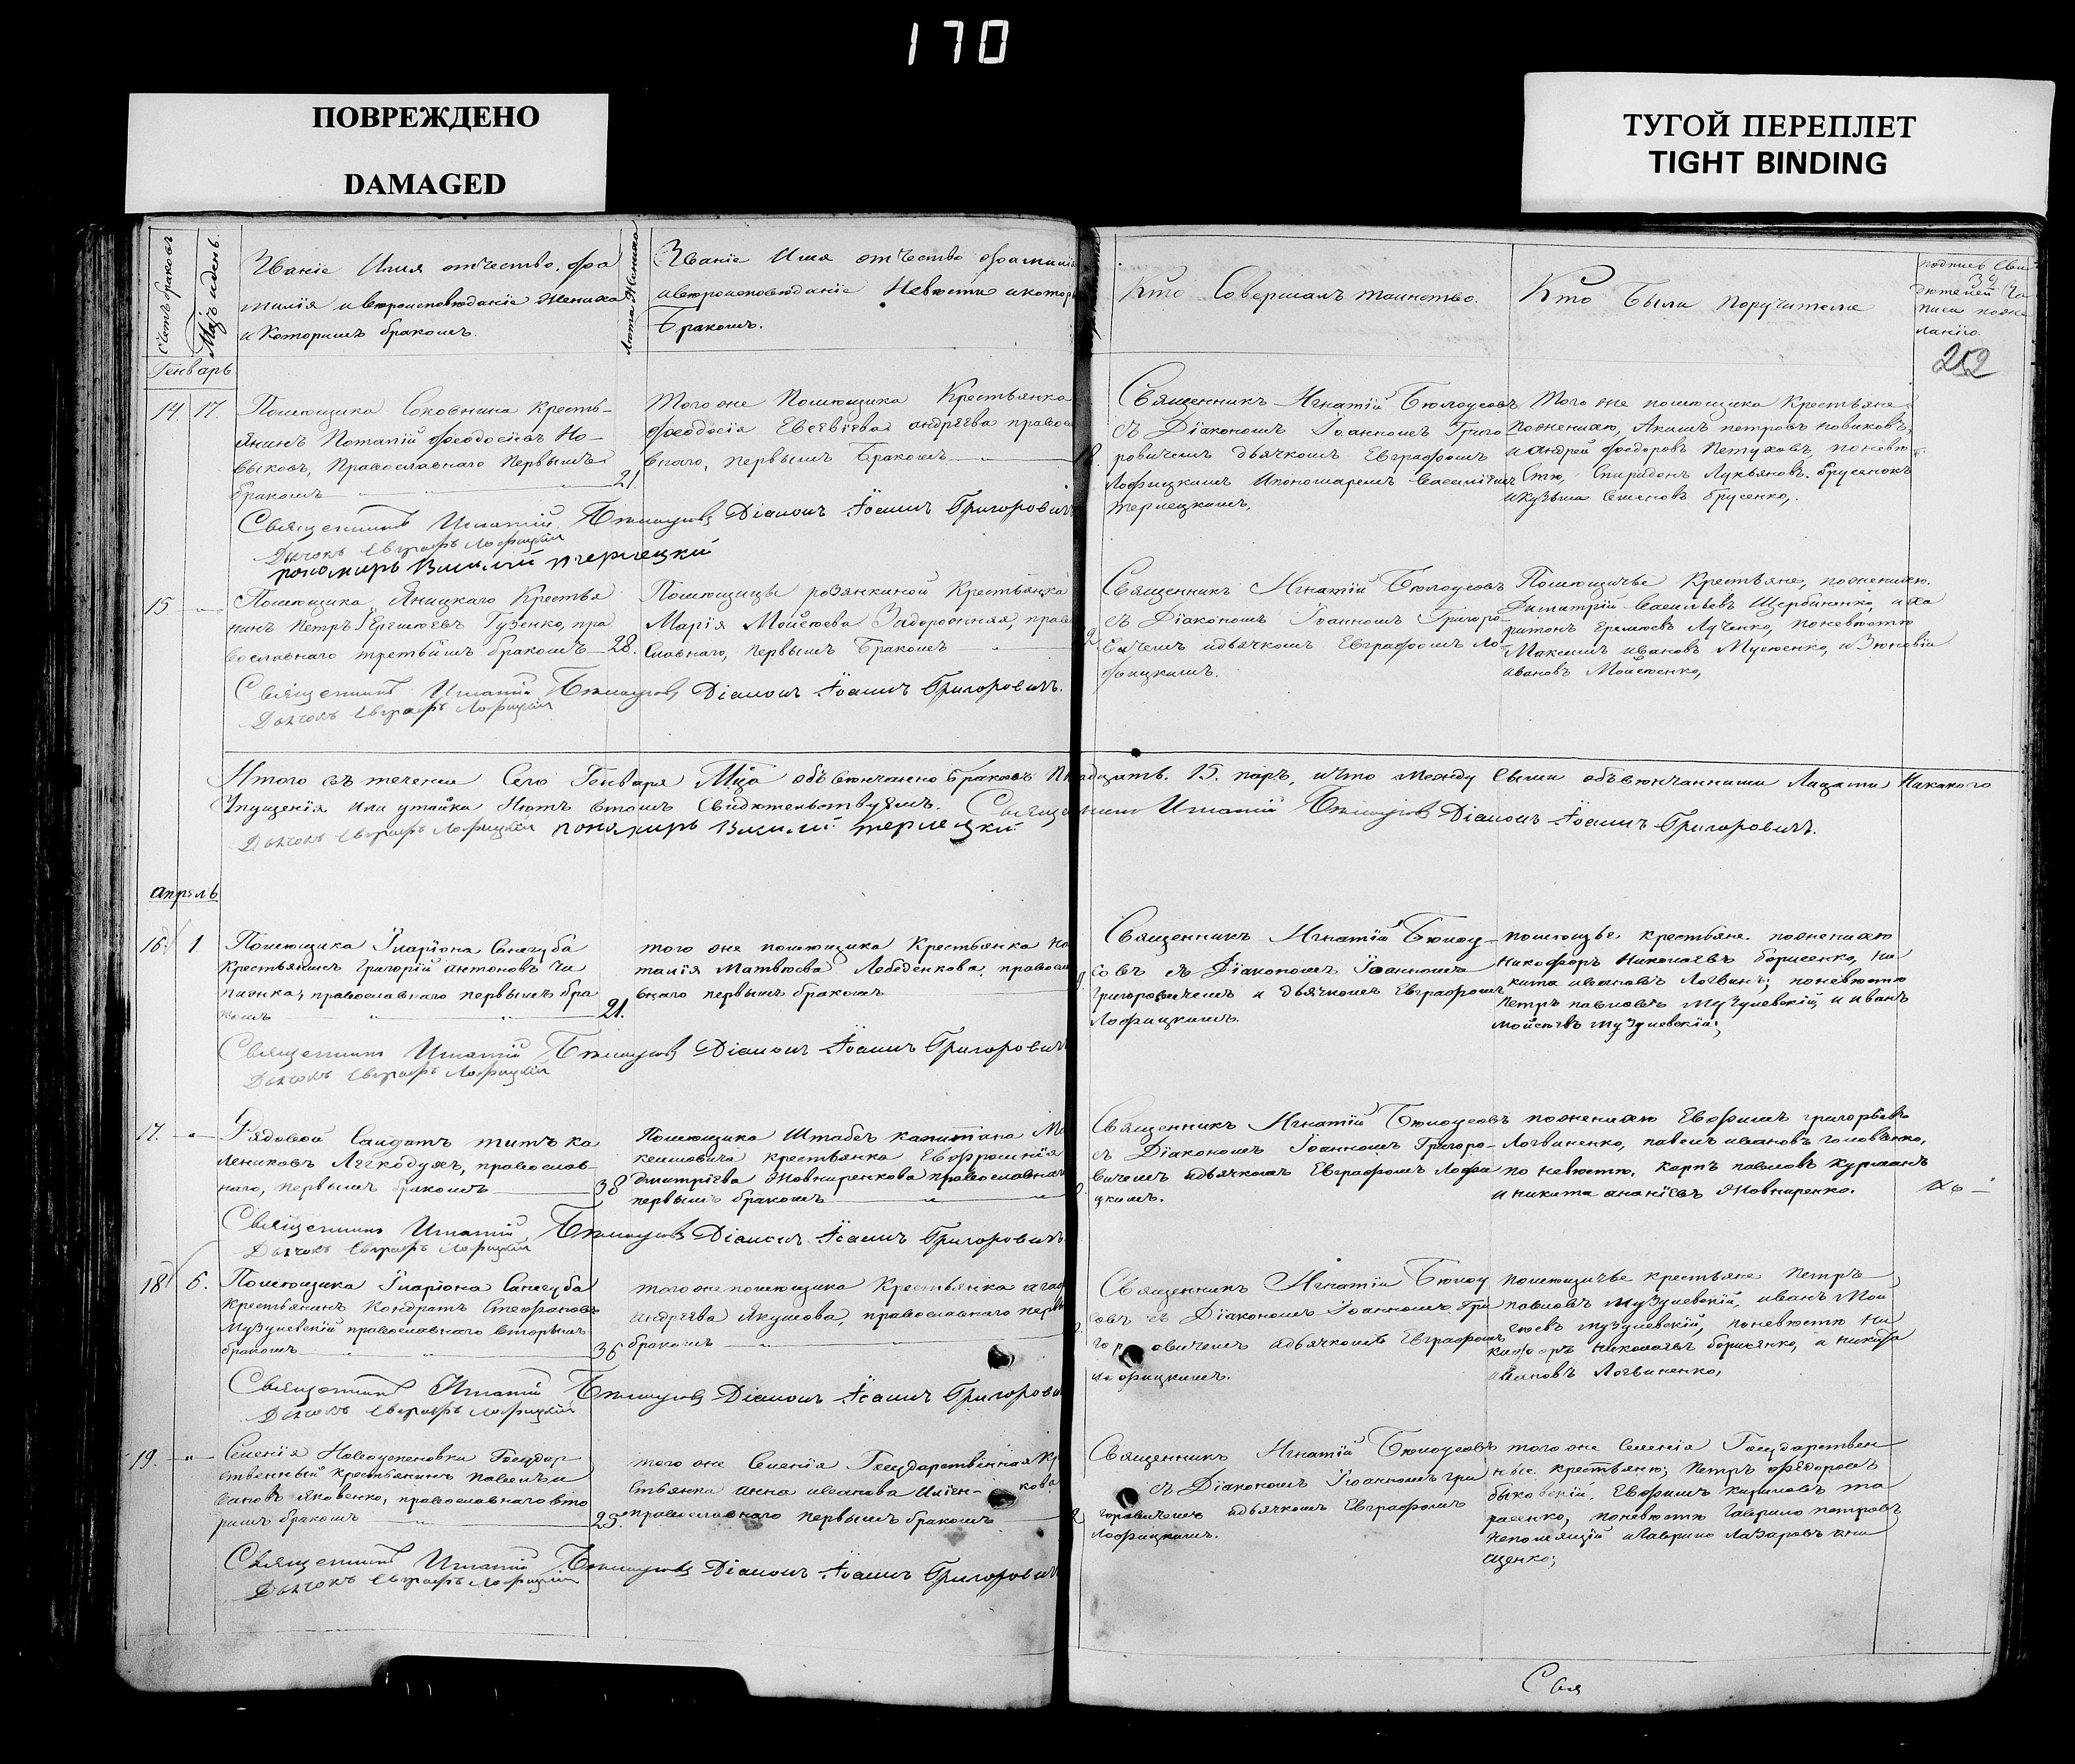 170
ПОВРЕЖДЕНО
DAMAGED
ТУГОЙ ПЕРЕПЛЕТ
TIGHT BINDING
Счетъ браковъ
Мцъ и день.
Званіе Имя отчество, фа
милія и вѣроисповѣданіе Жениха
и Которымъ бракомъ.
Лѣта Жениха
Званіе Имя отчество фамилі
и вѣроисповѣданіе Невѣсты и котор
Бракомъ.
Кто Совершалъ таинство.
Кто Были поручители
подпись Сви
дѣтелей
писи поже
ланію.
252
Генварь
14. 17.
Помѣщика Соковнина Кресть-
янинъ Потапій Феодосіевъ Но-
виковъ, Православнаго Первымъ
бракомъ 21.
Того же Помѣщика Крестьянка
Феодосія Евсевіева Андрѣева правос
внаго, первымъ Бракомъ
Священникъ Игнатій Бѣлоусовъ
съ Діакономъ Іоанномъ Григо-
ровичемъ дьячкомъ Евграфомъ
Лофицкимъ Ипономаремъ Василіемъ
Терлецкимъ,
Того же помѣщика Крестьяне
по жениху, Акимъ петровъ новиковъ,
и андрей Федоровъ Петуховъ, по невѣ-
стѣ, Спиридонъ Лукьяновъ Брусенокъ
и кузьма Семеновъ Брусенко,
Священникъ Игнатій Бѣлоусовъ Діаконъ Іоаннъ Григоровичъ
Дьячокъ Евграфъ Лофицкій
пономарь Василій терлецкій
15
Помѣщика Яницкаго Крестья
нинъ Петръ Еремѣевъ Гузенко, пра
вославнаго третьимъ бракомъ 28.
Помѣщицы розянкиной Крестьянка
Марія Мойсѣева Задорожняя, право
славнаго, первымъ Бракомъ
Священникъ Игнатій Бѣлоусовъ
съ Діакономъ Іоанномъ Григоро-
вичемъ идьячкомъ Евграфомъ Ло-
фицкимъ.
Помѣщичье Крестьяне, по жениху.
Димитрій Васильевъ Щербиненко, и ха
ритонъ Еремѣевъ Лученко, по невѣстѣ
Максимъ ивановъ Мусѣенко, и Зѣновій
ивановъ Мойсѣенко,
Священникъ Игнатій Бѣлоусовъ Діаконъ Іоаннъ Григоровичъ.
Дьячокъ Евграфъ Лофицкій
Итого въ теченіи Сего Генваря Мца обвѣнчано Браковъ Пятнадцать. 15. паръ, и что между Сыми обвѣнчанными Лицами Никакого
Упущенія или утайки Нѣтъ втомъ Свидѣтельствуемъ. Священникъ Игнатій Бѣлоусовъ Діаконъ Іоаннъ Григоровичъ.
Дьячокъ Евграфъ Лофицкій пономарь Василій терлецкій
апрель
16. 1
Помѣщика Иларіона Синегуба
Крестьянинъ Григорій антоновъ Ча
пленка, православнаго первымъ бра
комъ 21.
того же помѣщика Крестьянка На
талія Матвѣева Лебеденкова, правосла
внаго первымъ бракомъ
Священникъ Игнатій Бѣлоу-
совъ съ Діакономъ Іоанномъ
Григоровичемъ и дьячкомъ Евграфомъ
Лофицкимъ.
помѣщичье крестьяне. по жениху
Никифоръ Николаевъ борисенко, ни
кита ивановъ Логвин; по невѣстѣ
петръ павловъ Музулевскій, и иванъ
мойсѣевъ музулевскій;
Священникъ Игнатій Бѣлоусовъ Діаконъ Іоаннъ Григоровичъ
Дьячокъ Евграфъ Лофицкій
17.
Рядовой Салдатъ титъ ка
лениковъ Легкодухъ, православ-
наго, первымъ бракомъ 38
Помѣщика Штабсъ капитана Ма
ксимовича крестьянка Евфросинія
Дмитріева Жовниренкова православнаго
первымъ бракомъ
Священникъ Игнатій Бѣлоусовъ
съ Діакономъ Іоанномъ Григоро-
вичемъ идьячкомъ Евграфомъ Лофи
цкимъ.
по жениху Евфимъ григорьевъ
Логвиненко, павелъ ивановъ головенко,
по невѣстѣ, карпъ павловъ курманъ
и никита ананіевъ Жовниренко.
Священникъ Игнатій Бѣлоусовъ Діаконъ Іоаннъ Григоровичъ
Дьячокъ Евграфъ Лофицкій
18. 6.
Помѣщика Иларіона Синегуба
Крестьянинъ Кондратъ Стефановъ
Музулевскій православнаго вторымъ
бракомъ 36
того же помѣщика Крестьянка агаф
андрѣева Якушова, православнаго первы
бракомъ
Священникъ Игнатій Бѣлоу
совъ съ Діакономъ Іоанномъ Гри
горовичемъ идьячкомъ Евграфомъ
Лофицкимъ.
помѣщичье крестьяне Петръ
павловъ Музулевскій, иванъ Мой
сѣевъ музулевскій, по невѣстѣ ни
кифоръ Николаевъ борисенко, и никита
ивановъ Логвиненко,
Священникъ Игнатій Бѣлоусовъ Діаконъ Іоаннъ Григорови
Дьячокъ Евграфъ Лофицкій
19.
Селенія Новоуспеновки Государ-
ственный крестьянинъ павелъ и
вановъ Яковенко, православнаго вто
рымъ бракомъ 25.
того же Селенія Государственная Кр
стьянка анна иванова Ильен-кова
православнаго первымъ бракомъ
Священникъ Игнатій Бѣлоусовъ
съ Діакономъ Іоанномъ Гри
горовичемъ идьячкомъ Евграфомъ
Лофицкимъ.
того же Селенія Государствен
ные крестьяне; Петръ Федоровъ
быковскій, Евфимъ кириловъ та
расенко, по невѣстѣ Гаврило петровъ
непомящій и Гаврило Лазаровъ они
щенко;
Священникъ Игнатій Бѣлоусовъ Діаконъ Іоаннъ Григоровичъ
Дьячокъ Евграфъ Лофицкій
Свя